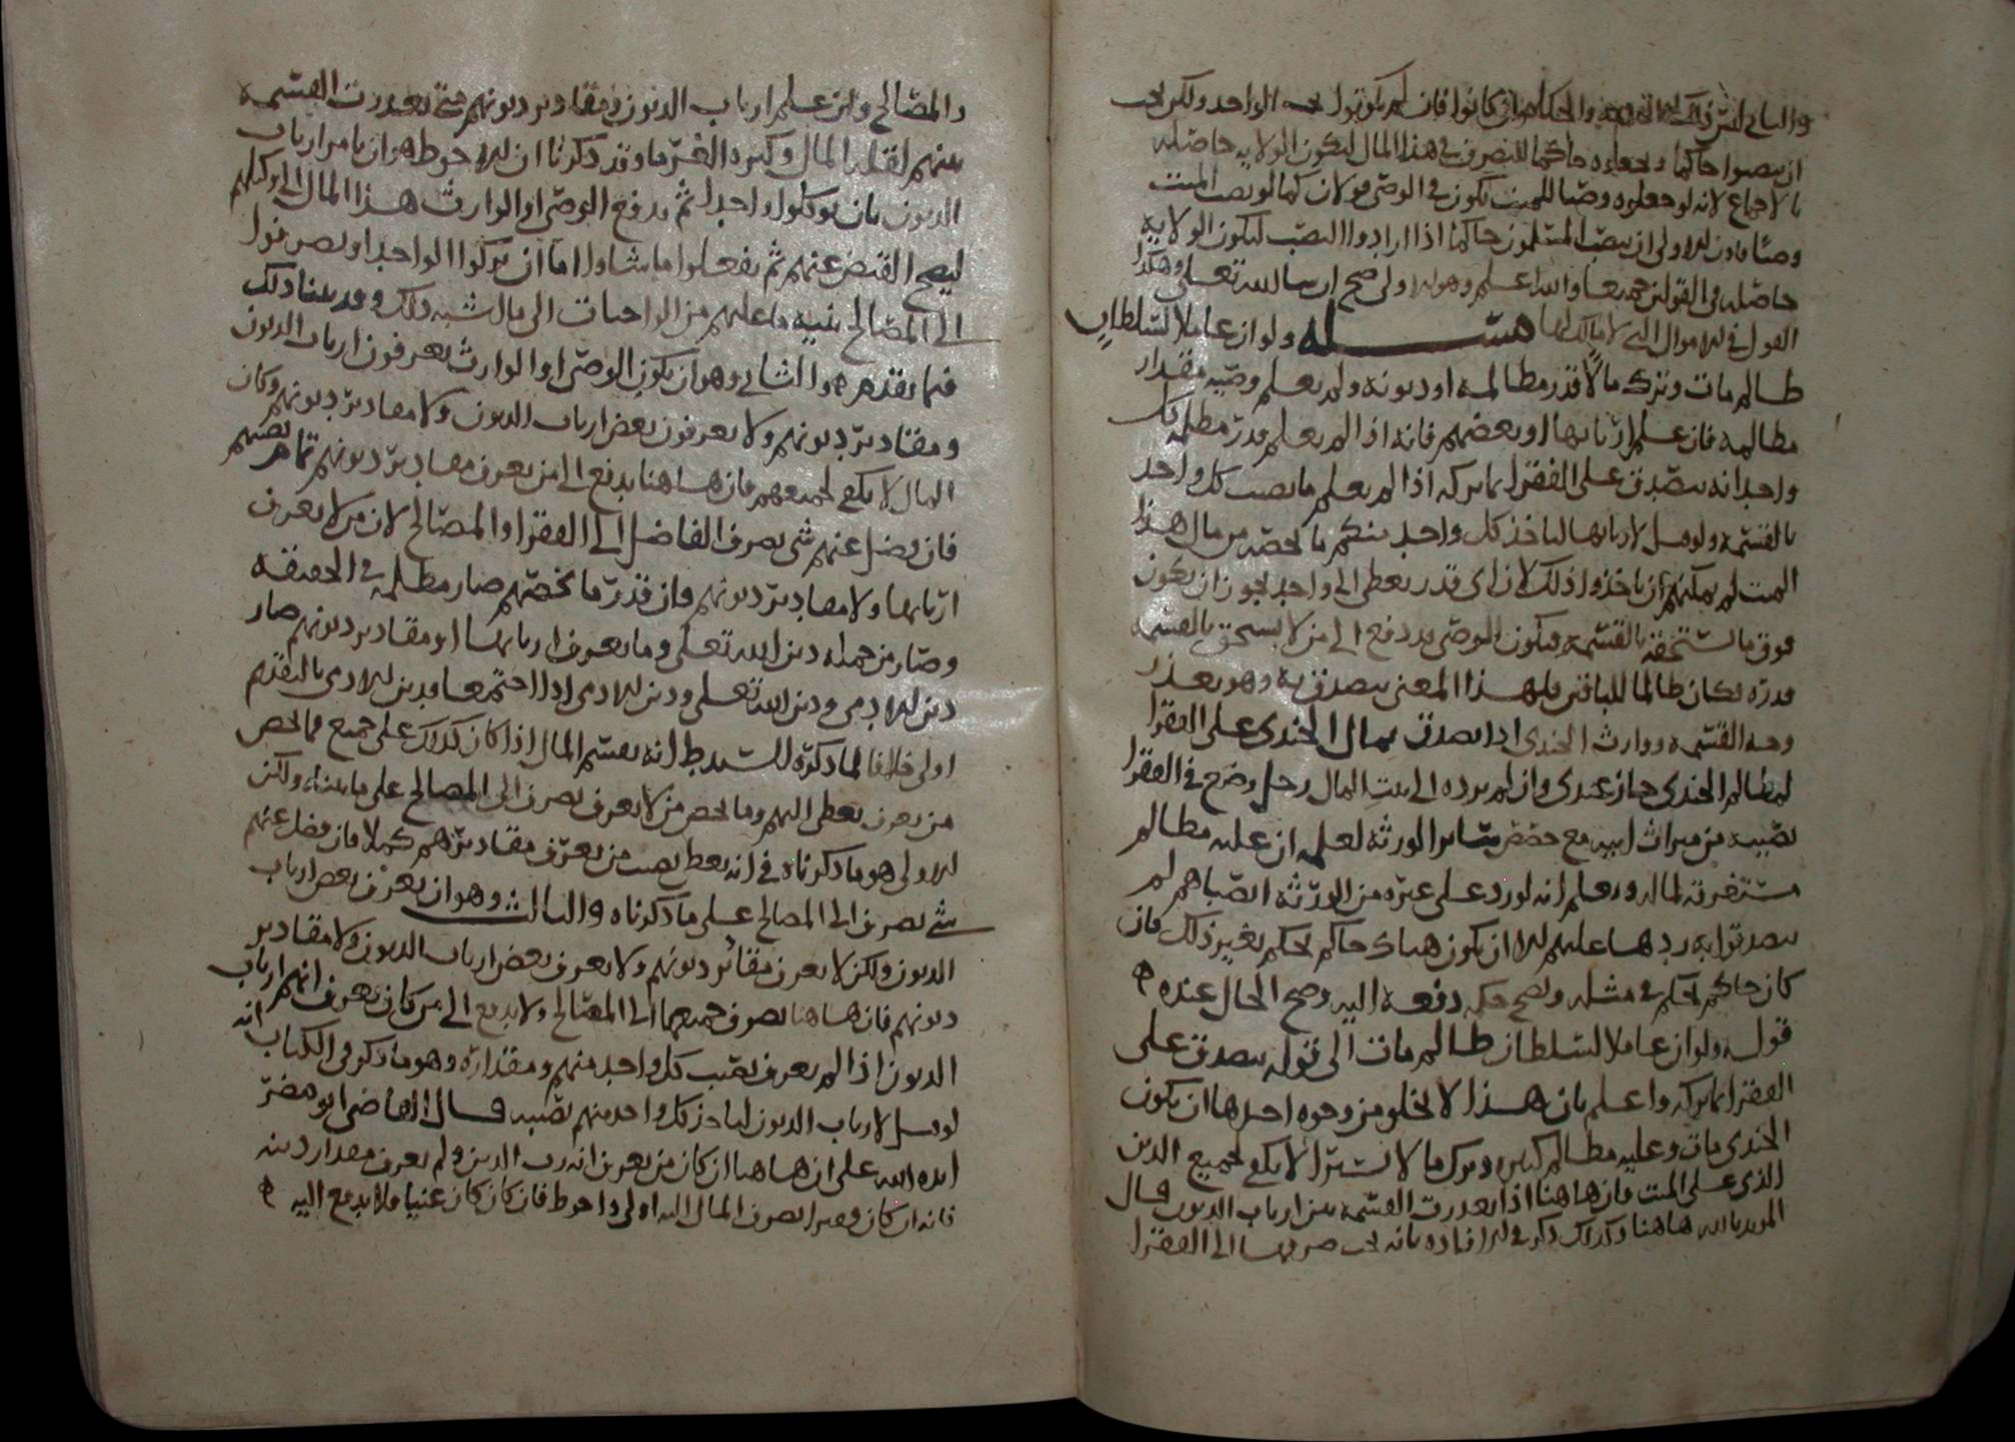 والحكام ان كانوا فان لم يكن قول الواحد ولكن يجب
ان ينصبوا حاكما ويجعلوه حاكما للتصرف في هذا المال ليكون الولاية حاصلة
بالاجماع لانه لو جعلوه وصيا للميت يكون في الوصي قولان كما لو نصب الميت
وصيا فاذن الاولى ان ينصب المسلمون حاكما اذا ارادوا النصب ليكون الولاية
حاصلة في القولين جميعا والله اعلم وهو الاولى صح ان شا الله تعلى وهكذا
القول في الاموال التي لا مالك لها مسئلة ولو ان عاملا لسلطان
ظالم مات وترك مالا قدر مظالمه او دونه ولم يعلم وصيه مقدار
مظالمه فان علم اربابها او بعضهم فانه اذا لم يعلم قدر مظلمة كل
واحد انه يتصدق على الفقرا بما تركه اذا لم يعلم ما نصيب كل واحد
بالقسمة ولو قيل لاربابها لياخذ كل واحد منكم بالحصة من مال هذا
الميت لم يمكنهم ان ياخذوا ذلك لان اي قدر يعطى الى واحد يجوز ان يكون
فوق ما يستحقه بالقسمة فيكون الوصي قد دفع الى من لا يستحق بالقسمة
قدره لكان ظالما للباقي فلهذا المعنى يتصدق به وهو تعذر
وجه القسمة ووارث الجندي اذا تصدق بمال الجندي على الفقرا
لمظالم الجندي جاز عندي وان لم يرده الى بيت المال رجل وضع في الفقرا
نصيبه من ميراث ابيه مع حصص سائر الورثة لعلمه ان عليه مظالم
مستغرقة لماله ويعلم انه لو رد على غيره من الورثة انصباهم لم
يتصدقوا به ردها عليهم الا ان يكون هناك حاكم يحكم بغير ذلك فان
كان حاكم يحكم في مثله ويصح حكمه دفعه اليه وصح الحال عنده ه
قوله ولو ان عاملا لسلطان ظالم مات الى قوله يتصدق على
الفقرا بما تركه واعلم بان هذا لا يخلو من وجوه احدها ان يكون
الجندي مات وعليه مظالم كثيرة وترك مالا يسيرا لا يكفي لجميع الدين
الذي على الميت فان هاهنا اذا تعذرت القسمة بين ارباب الديون قال
المويد بالله هاهنا وكذلك ذكر في الافادة بانه يجب صرفها الى الفقرا
والمصالح وان علم ارباب الديون ومقادير ديونهم متى تعذرت القسمة
بينهم لقلة المال وكثرة الغرما وقد ذكرنا ان الاحوط هو ان يامر ارباب
الديون بان يوكلوا واحدا ثم يدفع الوصي او الوارث هذا المال الى وكيلهم
ليصح القبض عنهم ثم يفعلوا ما شاوا اما ان يتركوا الواحد او يصرفوا
الى المصالح بنية ما عليهم من الواجبات الى مال شبه ذلك وقد بينا ذلك
فيما تقدم ه والثاني وهو ان يكون الوصي او الوارث يعرفون ارباب الديون
ومقادير ديونهم ولا يعرفون بعض ارباب الديون ولا مقادير ديونهم وكان
المال لا يكفي لجميعهم فان هاهنا يدفع الى من يعرف مقادير ديونهم تمام نصيبهم
فان فضل عنهم شي يصرف الفاضل الى الفقرا والمصالح لان من لا يعرف
اربابها ولا مقادير ديونهم وان قدر ما يخصهم صار مظلمة في الحقيقة
وصار من جملة دين الله تعلى وما يعرف اربابها او مقادير ديونهم صار
دين الادمي ودين الله تعلى ودين الادمي اذا اجتمعا فدين الادمي بالتقديم
اولى خلافا لما ذكره السيد ط انه يقسم المال اذا كان كذلك على جميع فما يخص
من يعرف يعطى اليهم وما يخص من لا يعرف يصرف الى المصالح على ما بيناه ولكن
الاولى هو ما ذكرناه في انه يعطى نصيب من يعرف مقاديرهم كملا فان فضل عنهم
شي يصرف الى المصالح على ما ذكرناه والثالث وهو ان يعرف بعض ارباب
الديون ولكن لا يعرف مقادير ديونهم ولا يعرف بعض ارباب الديون ولا مقادير
ديونهم فان هاهنا يصرف جميعها الى المصالح ولا يدفع الى من كان يعرف انهم ارباب
الديون اذا لم يعرف نصيب كل واحد منهم ومقداره وهو ما ذكر في الكتاب انه
لو قيل لارباب الديون لياخذ كل واحد منهم نصيبه قال القاضي ابو مضر
ايده الله على ان هاهنا ان كان من يعرف انه رب الدين ولم يعرف مقدار دينه
فانه ان كان فقيرا يصرف المال اليه اولى واحوط فان كان كان غنيا فلا يدفع اليه ه